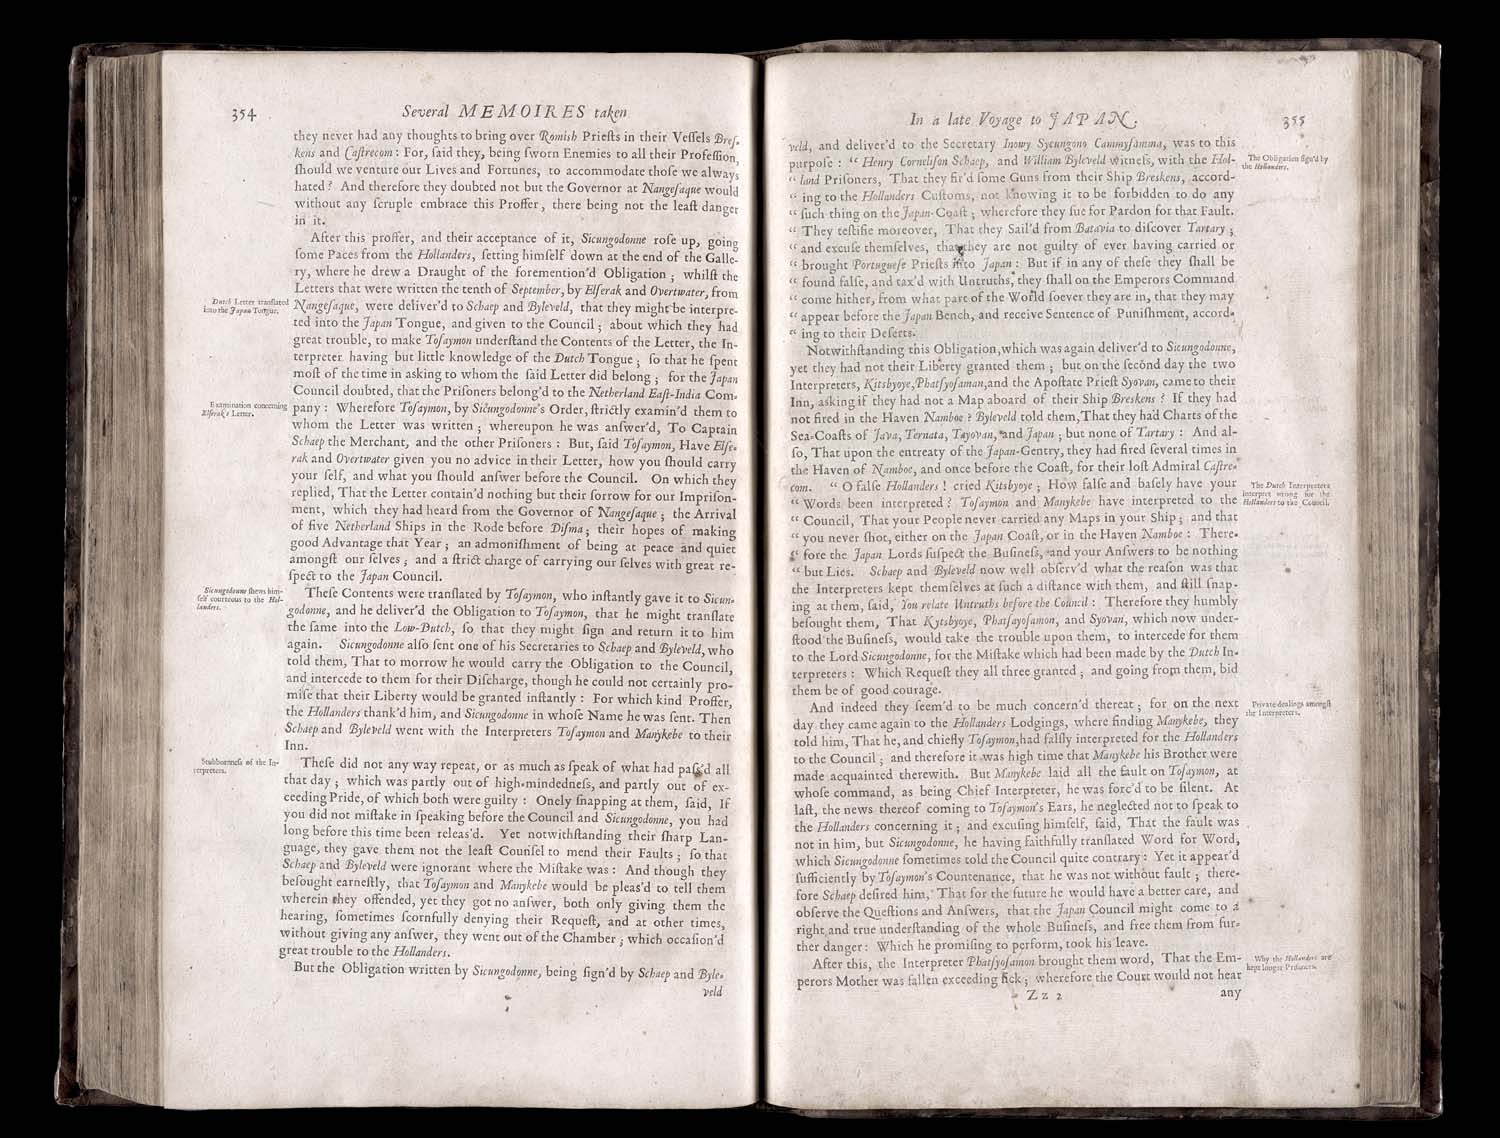 354
Several MEMOIRES taken
they never had any thoughts to bring over Romish Prieſts in their Veſſels Breſ-
kens and Caſtrecom : For, ſaid they, being ſworn Enemies to all their Profeſſion,
ſhould we venture our Lives and Fortunes, to accommodate thoſe we always
hated ? And therefore they doubted not but the Governor at Nangeſaque would
without any ſcruple embrace this Proffer, there being not the leaſt danger
in it.
After this proffer, and their acceptance of it, Sicungodonne roſe up, going
ſome Paces from the Hollanders, ſetting himſelf down at the end of the Galle-
ry, where he drew a Draught of the foremention'd Obligation ; whilſt the
Letters that were written the tenth of September, by Elſerak and Overtwater, from
Dutch Letter tranſlated
into the Japan Tongue.
Nangeſaque, were deliver'd to Schaep and Byleveld, that they might be interpre-
ted into the Japan Tongue, and given to the Council ; about which they had
great trouble, to make Toſaymon underſtand the Contents of the Letter, the In-
terpreter having but little knowledge of the Dutch Tongue ; ſo that he ſpent
moſt of the time in asking to whom the ſaid Letter did belong ; for the Japan
Council doubted, that the Priſoners belong'd to the Netherland Eaſt-India Com-
Examination concerning
Elſerak's Letter.
pany : Wherefore Toſaymon, by Sicungodonne's Order, ſtrictly examin'd them to
whom the Letter was written ; whereupon he was anſwer'd, To Captain
Schaep the Merchant, and the other Priſoners : But, ſaid Toſaymon, Have Elſe-
rak and Overtwater given you no advice in their Letter, how you ſhould carry
your ſelf, and what you ſhould anſwer before the Council. On which they
replied, That the Letter contain'd nothing but their ſorrow for our Impriſon-
ment, which they had heard from the Governor of Nangeſaque ; the Arrival
of five Netherland Ships in the Rode before Diſma ; their hopes of making
good Advantage that Year ; an admoniſhment of being at peace and quiet
amongſt our ſelves ; and a ſtrict charge of carrying our ſelves with great re-
ſpect to the Japan Council.
Sicungodonne ſhews him-
ſelf courteous to the Hol-
landers.
Theſe Contents were tranſlated by Toſaymon, who inſtantly gave it to Sicun-
godonne, and he deliver'd the Obligation to Toſaymon, that he might tranſlate
the ſame into the Low-Dutch, ſo that they might ſign and return it to him
again. Sicungodonne alſo ſent one of his Secretaries to Schaep and Byleveld, who
told them, That to morrow he would carry the Obligation to the Council,
and intercede to them for their Diſcharge, though he could not certainly pro-
miſe that their Liberty would be granted inſtantly : For which kind Proffer,
the Hollanders thank'd him, and Sicungodonne in whoſe Name he was ſent. Then
Schaep and Byleveld went with the Interpreters Toſaymon and Manykebe to their
Inn.
Stubbornneſs of the In-
terpreters.
Theſe did not any way repeat, or as much as ſpeak of what had paſs'd all
that day ; which was partly out of high-mindedneſs, and partly out of ex-
ceeding Pride, of which both were guilty : Onely ſnapping at them, ſaid, If
you did not miſtake in ſpeaking before the Council and Sicungodonne, you had
long before this time been releas'd. Yet notwithſtanding their ſharp Lan-
guage, they gave them not the leaſt Counſel to mend their Faults ; ſo that
Schaep and Byleveld were ignorant where the Miſtake was : And though they
beſought earneſtly, that Toſaymon and Manykebe would be pleas'd to tell them
wherein they offended, yet they got no anſwer, both only giving them the
hearing, ſometimes ſcornfully denying their Requeſt, and at other times,
without giving any anſwer, they went out of the Chamber ; which occaſion'd
great trouble to the Hollanders.
But the Obligation written by Sicungodonne, being ſign'd by Schaep and Byle-
veld
In a late Voyage to JAPAN.
355
veld, and deliver'd to the Secretary Inowy Sycungono Cammyſamma, was to this
The Obligation ſign'd by
the Hollanders.
purpoſe : “ Henry Corneliſon Schaep, and William Byleveld witneſs, with the Hol-
“ land Priſoners, That they fir'd ſome Guns from their Ship Breskens, accord-
“ ing to the Hollanders Cuſtoms, not knowing it to be forbidden to do any
“ ſuch thing on the Japan-Coaſt ; wherefore they ſue for Pardon for that Fault.
“ They teſtifie moreover, That they Sail'd from Batavia to diſcover Tartary ;
“ and excuſe themſelves, that they are not guilty of ever having carried or
“ brought Portugueſe Prieſts into Japan : But if in any of theſe they ſhall be
“ found falſe, and tax'd with Untruths, they ſhall on the Emperors Command
“ come hither, from what part of the World ſoever they are in, that they may
“ appear before the Japan Bench, and receive Sentence of Puniſhment, accord-
“ ing to their Deſerts.
Notwithſtanding this Obligation, which was again deliver'd to Sicungodonne,
yet they had not their Liberty granted them ; but on the ſecond day the two
Interpreters, Kitsbyoye, Phatſyoſaman, and the Apoſtate Prieſt Syovan, came to their
Inn, asking if they had not a Map aboard of their Ship Breskens ? If they had
not fired in the Haven Namboe ? Byleveld told them, That they had Charts of the
Sea-Coaſts of Java, Ternata, Tayovan, and Japan ; but none of Tartary : And al-
ſo, That upon the entreaty of the Japan-Gentry, they had fired ſeveral times in
the Haven of Namboe, and once before the Coaſt, for their loſt Admiral Caſtre-
com. “ O falſe Hollanders ! cried Kitsbyoye ; How falſe and baſely have your
The Dutch Interpreters
interpret wrong for the
Hollanders to the Council.
“ Words been interpreted ? Toſaymon and Manykebe have interpreted to the
“ Council, That your People never carried any Maps in your Ship ; and that
“ you never ſhot, either on the Japan Coaſt, or in the Haven Namboe : There-
“ fore the Japan Lords ſuſpect the Buſineſs, and your Anſwers to be nothing
“ but Lies. Schaep and Byleveld now well obſerv'd what the reaſon was that
the Interpreters kept themſelves at ſuch a diſtance with them, and ſtill ſnap-
ing at them, ſaid, You relate Untruths before the Council : Therefore they humbly
beſought them, That Kytsbyoye, Phatſayoſamon, and Syovan, which now under-
ſtood the Buſineſs, would take the trouble upon them, to intercede for them
to the Lord Sicungodonne, for the Miſtake which had been made by the Dutch In-
terpreters : Which Requeſt they all three granted ; and going from them, bid
them be of good courage.
And indeed they ſeem'd to be much concern'd thereat ; for on the next
Private dealings amongſt
the Interpreters.
day they came again to the Hollanders Lodgings, where finding Manykebe, they
told him, That he, and chiefly Toſaymon, had falſly interpreted for the Hollanders
to the Council ; and therefore it was high time that Manykebe his Brother were
made acquainted therewith. But Manykebe laid all the fault on Toſaymon, at
whoſe command, as being Chief Interpreter, he was forc'd to be ſilent. At
laſt, the news thereof coming to Toſaymon's Ears, he neglected not to ſpeak to
the Hollanders concerning it ; and excuſing himſelf, ſaid, That the fault was
not in him, but Sicungodonne, he having faithfully tranſlated Word for Word,
which Sicungodonne ſometimes told the Council quite contrary : Yet it appear'd
ſufficiently by Toſaymon's Countenance, that he was not without fault ; there-
fore Schaep deſired him, That for the future he would have a better care, and
obſerve the Queſtions and Anſwers, that the Japan Council might come to a
right and true underſtanding of the whole Buſineſs, and free them from fur-
ther danger : Which he promiſing to perform, took his leave.
After this, the Interpreter Phatſyoſamon brought them word, That the Em-
Why the Hollanders are
kept longer Priſoners.
perors Mother was fallen exceeding ſick ; wherefore the Court would not hear
Z z 2
any